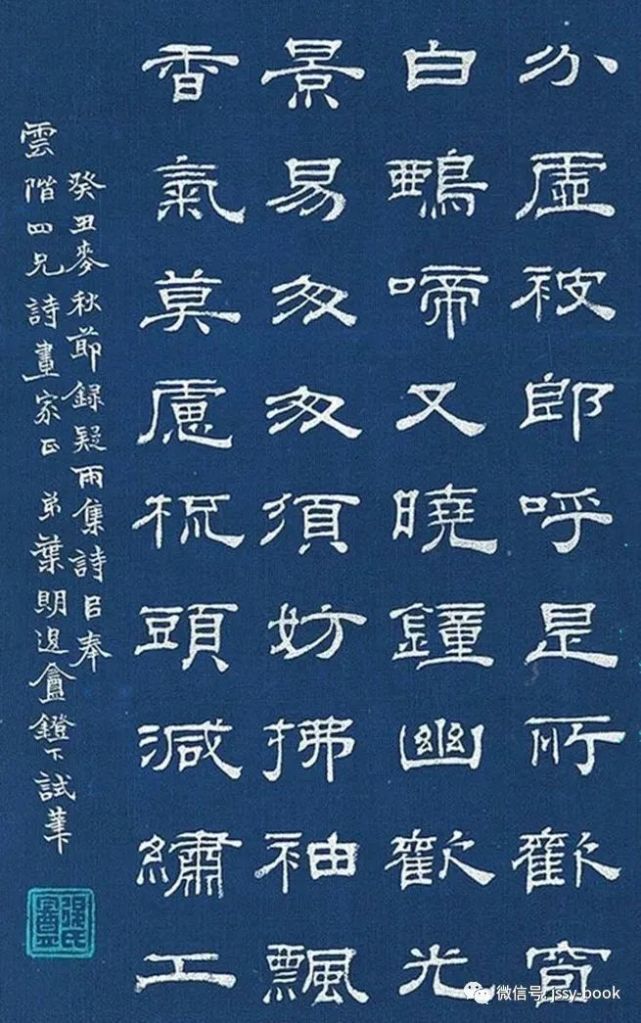 心虛被郎呼是所歡窗
白鵶啼又曉鐘幽歡光
景易匆匆須妨拂袖飄
香氣莫慮梳頭減繡工
癸丑麥秋節錄疑雨集詩㠯奉
雲階四兄詩畫家正 弟葉盦鐙下試筆
微信号: jssy-book